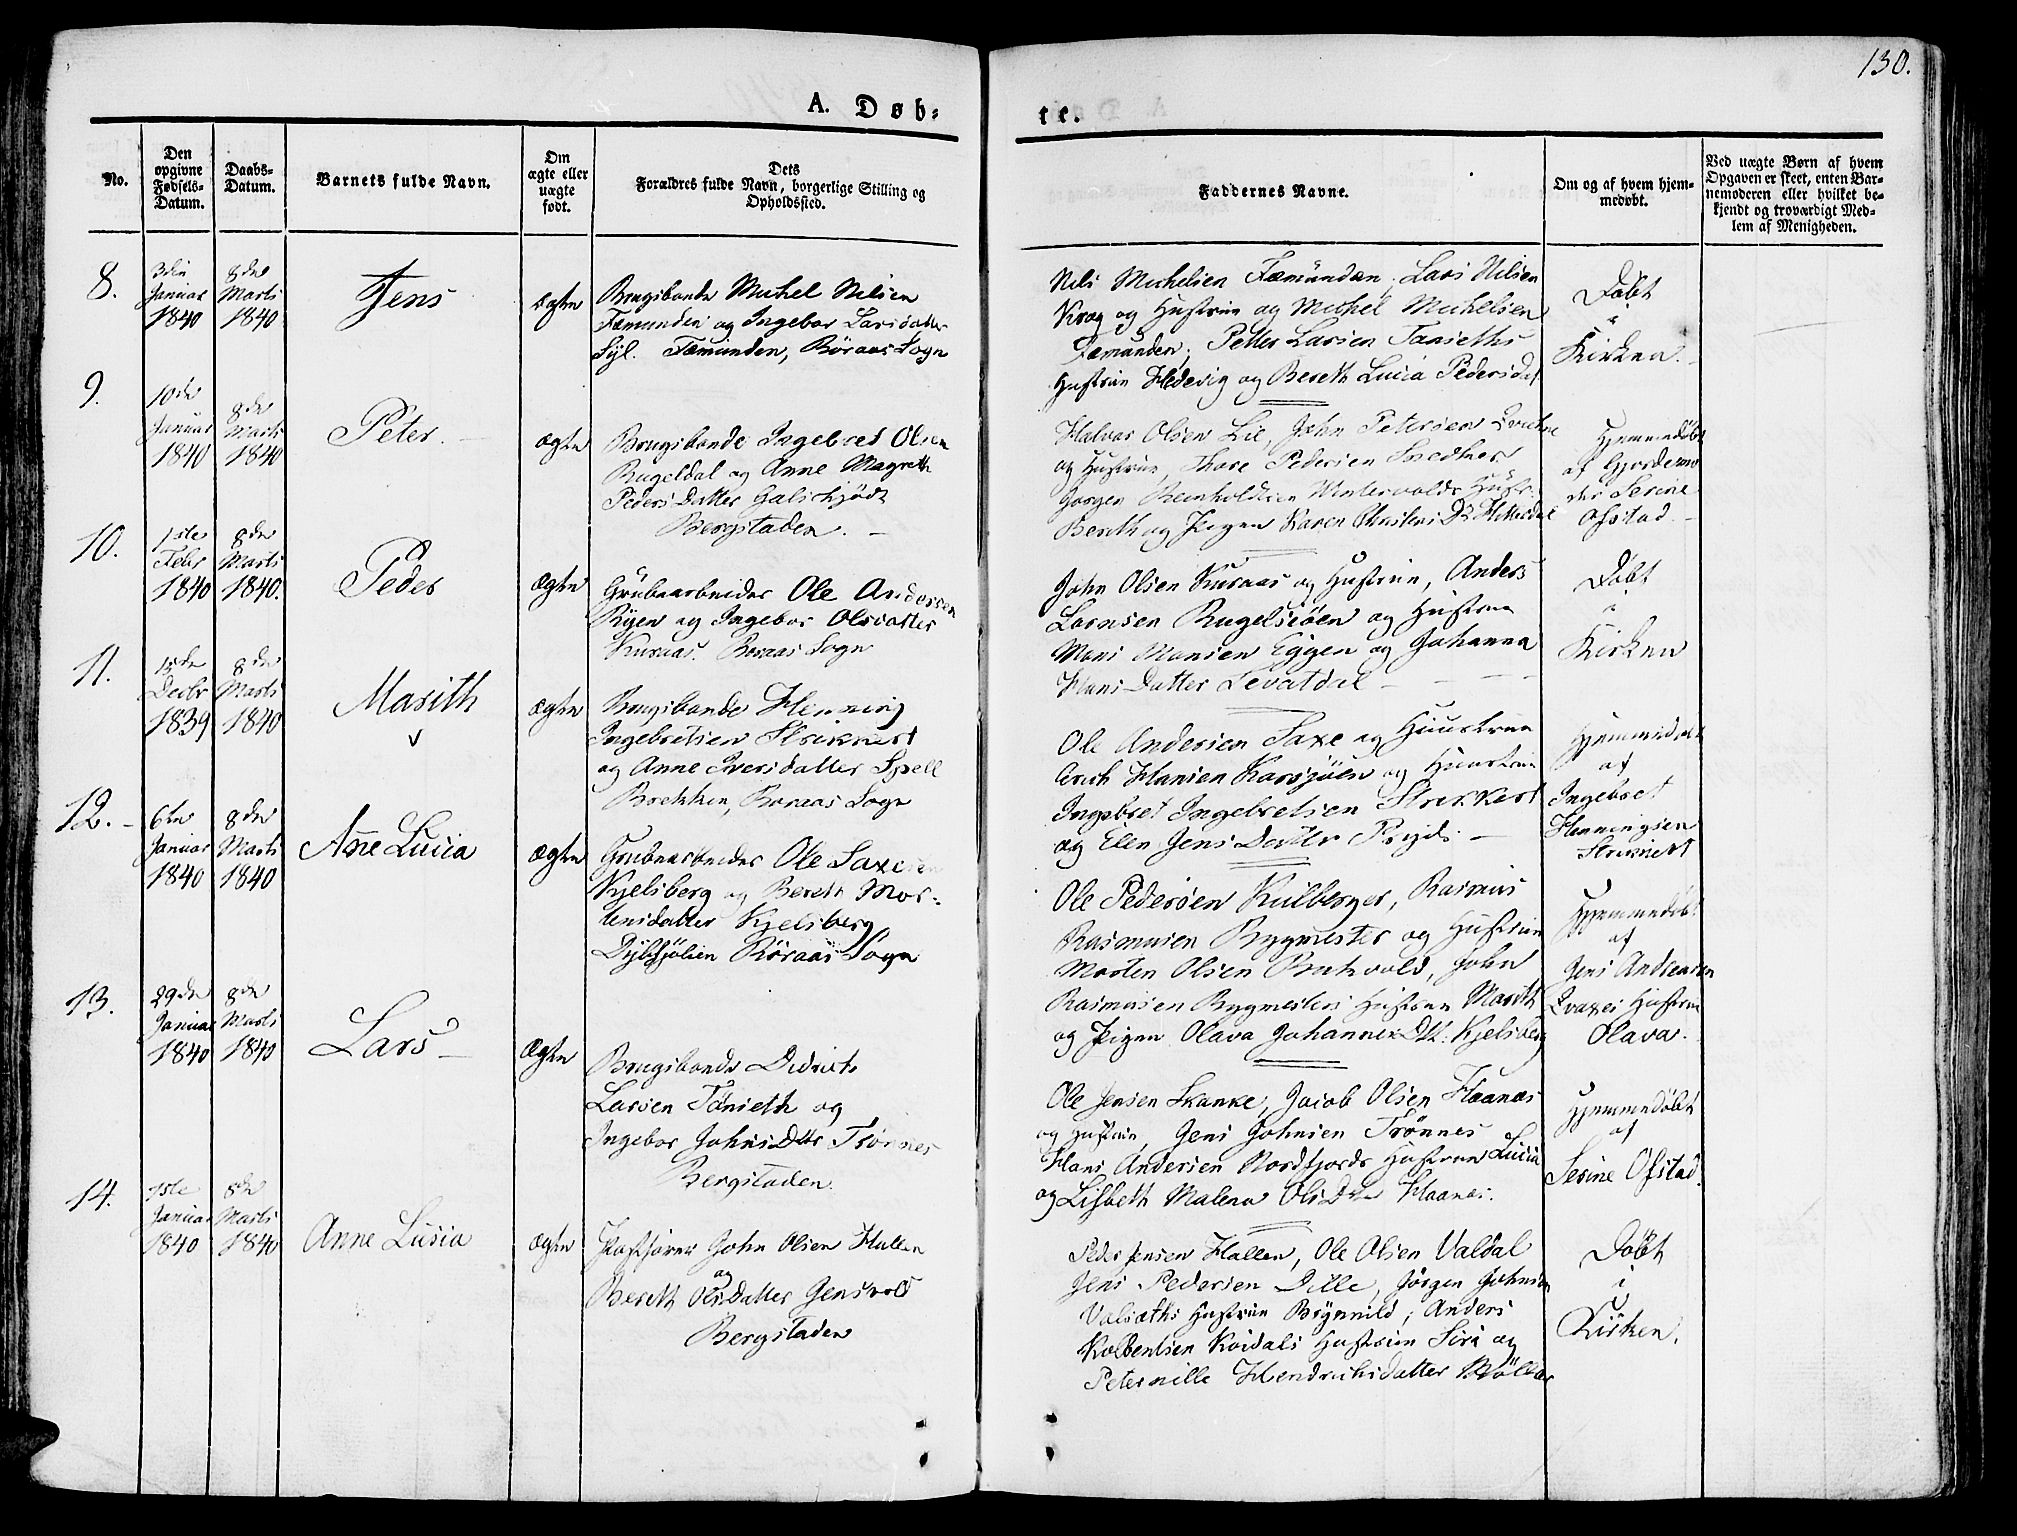 130.
A. Døb-
te.
No.
Den opgivne Fødsels-Datum.
Daabs-Datum.
Barnets fulde Navn.
Om ægte eller uægte født.
Dets Forældres fulde Navn, borgerlige Stilling og Opholdssted.
Faddernes Navne.
Om og af hvem hjem-medøbt.
Ved uægte Børn af hvem Opgaven er skeet, enten Bar-nemoderen eller hvilket be-kjendt og troværdigt Med-lem af Menigheden.
8.
3die Januar 1840
8de Marts 1840
Jens
ægte
Brugsbonde Michel Nilsen
Fæmunden og Ingebor Larsdatter
Syl. Fæmunden, Röraas Sogn
Nils Michelsen Fæmunden, Lars Nilsen
Krog og Hustrue og Michel Michelsen
Fæmunden, Petter Larsen Tamneths
Hustrue Hedevig og Bereth Lucia Pedersdat
Døbt
i
Kirken.
9.
10de Januar 1840
8de Marts 1840
Peter.
ægte
Brugsbonde Ingebret Olsen
Rugeldal og Anne Magreth
Peders Datter Galschjödt
Bergstaden.
Halvor Olsen Lie, John Petersen
og Hustrue, Thore Pedersen
Jørgen Reinholdtsen Wintervolds Hustr.
Bereth og Pigen Karen Christens D. Hitterdal
Hjemmedøbt
af Gjordemo
der Serine
Ofstad.
10.
1ste Febr 1840
8de Marts 1840.
Peder
Ægte
Grubearbeider Ole Andersen
Ryen og Ingebor Olsdatter
Kuraas. Roraas Sogn
John Olsen Kuraas og Hustrue, Anders
Larnsen Rugelsjöen og Hustrue
Mons Monsen Eggen og Johanna
Hans Datter Levatdal
Døbt
i
Kirken
11.
15de Decbr 1839
8de Marts 1840
Marith
Ægte
Brugsbonde Henning
Ingebretsen Strikkert
og Anne Iversdatter Spell
Brekken, Roraas Sogn
Ole Andersen Saxe og Huustrue
Erich Hansen Korssjöen og Huustrue
Ingebret Ingebretsen Strikkert
og Elen Jens Datter Pryds.
Hjemmedøbt
af
Ingebret
Henningsen
Strikkert
12.
6te Januar 1840
8de Marts 1840
Anne Lucia
Ægte
Grubearbeider Ole Saxesen
Kjelsberg og Bereth Mor-
tensdatter Kjelsberg
Dybsjölien Röraas Sogn
Ole Pedersen Kulberger, Rasmus
Rasmusen Bygmester og Hustrue
Morten Olsen Buhvold, John
Rasmusen Bygmesters Hustrue Marith
og Pigen Olava Johannes Dtt. Kjelsberg
Hjemmedøbt
af
Jens Andreasen
Hustrue
Olava.
13.
29de Januar 1840
8de Marts 1840
Lars
Ægte
Brugsbonde Didrich
Larsen Tönieth og
Ingebor Johns Dttr Trönnes
Bergstaden.
Ole Jensen Skanke, Jacob Olsen Haanes
og Hustrue, Jens Johnsen Trönnes
Hans Andersen Nordfjords Hustrue Lucia
og Lisbeth Malena Ols Dtter Haanes.
Hjemmedøbt
af
Serine Ofstad.
14.
1ste Januar 1840
8de Marts 1840
Anne Lusia
ægte
Postförer John Olsen Hallen
og
Bereth Olsdatter Jensvold
Bergstaden
Peder Jensen Hallen, Ole Olsen Valdal
Jens Pedersen Dille, Jörgen Johnsen
Valsæths Hustrue Brynnild, Anders
Kolbentsen Koidals Hustrue Siri og
Peternille Hendrichsdatter Möller
Døbt
i
Kirken.